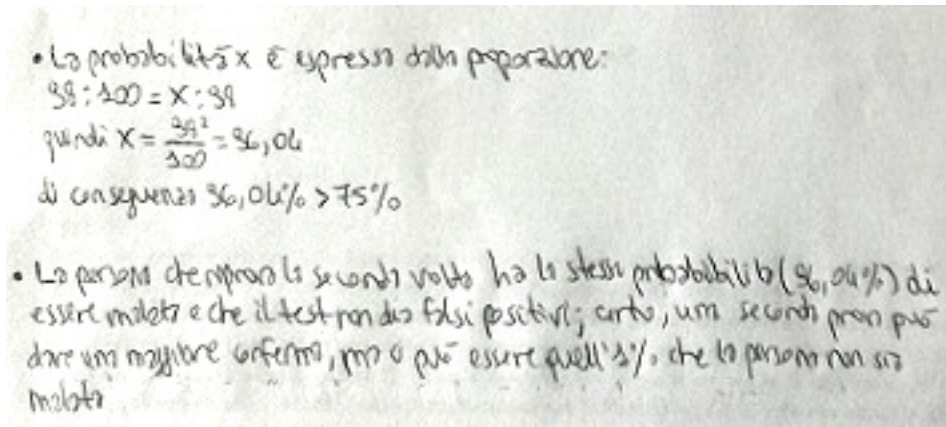 • La probabilità x è espressa dalla proporzione:
98:100 = x:98
quindi x = 98²/100 = 96,04
di conseguenza 96,04% > 75%
• La persona che riprova la seconda volta ha la stessa probabilità (96,04%) di
essere malata e che il test non dia falsi positivi; certo, una seconda prova può
dare una maggiore conferma, ma può essere quell'1% che la persona non sia
malata